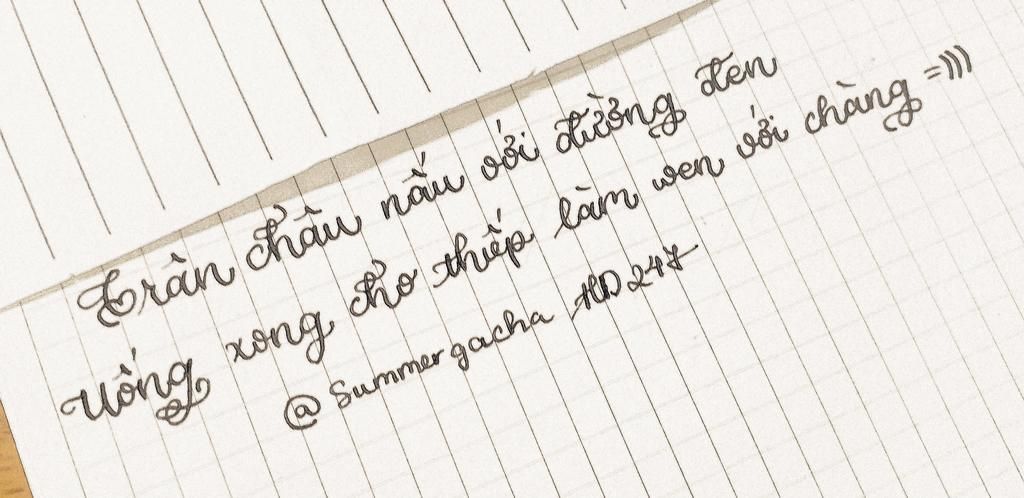 Trân Châu nấu với đường đen
Uống xong cho thiếp làm wen với chàng =)))
@ Summer gacha HD247